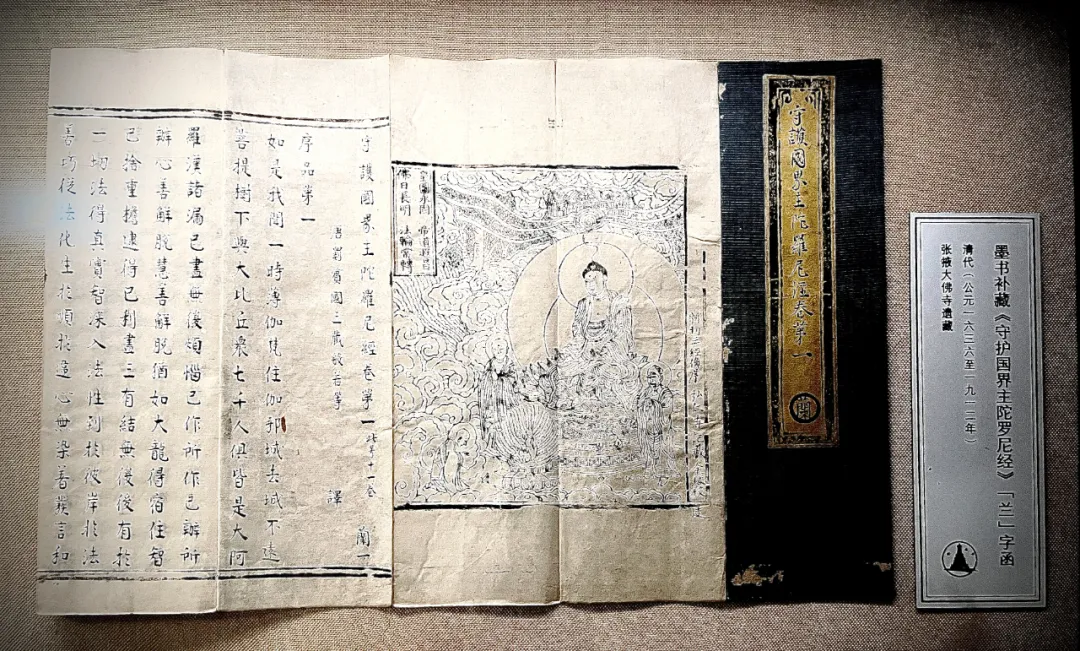 墨书补藏《守护国界主陀罗尼经》「兰」字函
清代（公元一六三六至一九一二年）
张掖大佛寺遗藏
守護國界主陀羅尼經卷第一
蘭
皇圖永固 帝道遐昌
佛日長明 法輪常轉
守護國界主陀羅尼經卷第一 十一卷 蘭一
唐罽賓國三藏般若等 譯
序品第一
如是我聞一時薄伽梵住伽耶城去城不遠
菩提樹下與大比丘衆七千人俱皆是大阿
羅漢諸漏已盡無復煩惱已作所作已辦所
辦心善解脫慧善解脫猶如大龍得宿住智
已捨重擔逮得己利盡三有結無復後有於
一切法得真實智深入法性到於彼岸於法
善巧從法化生於順於道心無染著發言和